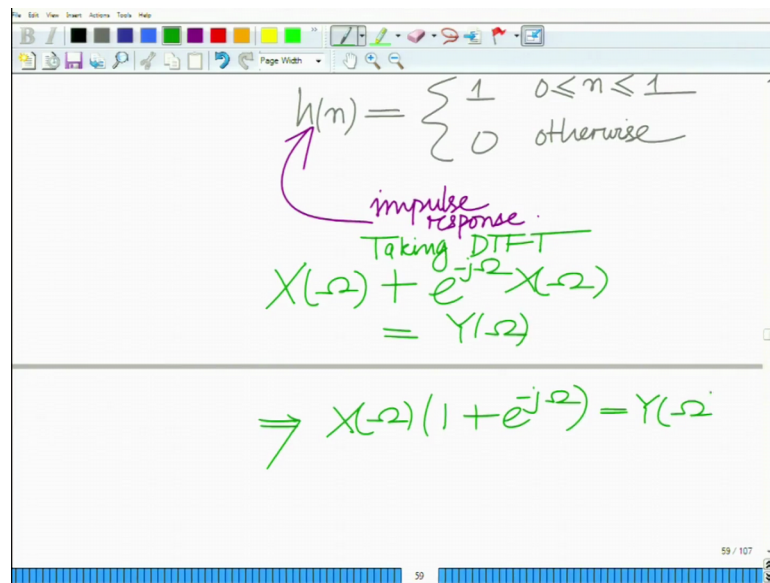 File Edit View Insert Actions Tools Help
B I
Page Width
h(n) = { 1 0 ≤ n ≤ 1
0 otherwise
impulse
response.
Taking DTFT
X(Ω) + e^{-jΩ} X(Ω)
= Y(Ω)
⇒ X(Ω)(1 + e^{-jΩ}) = Y(Ω
59 / 107
59